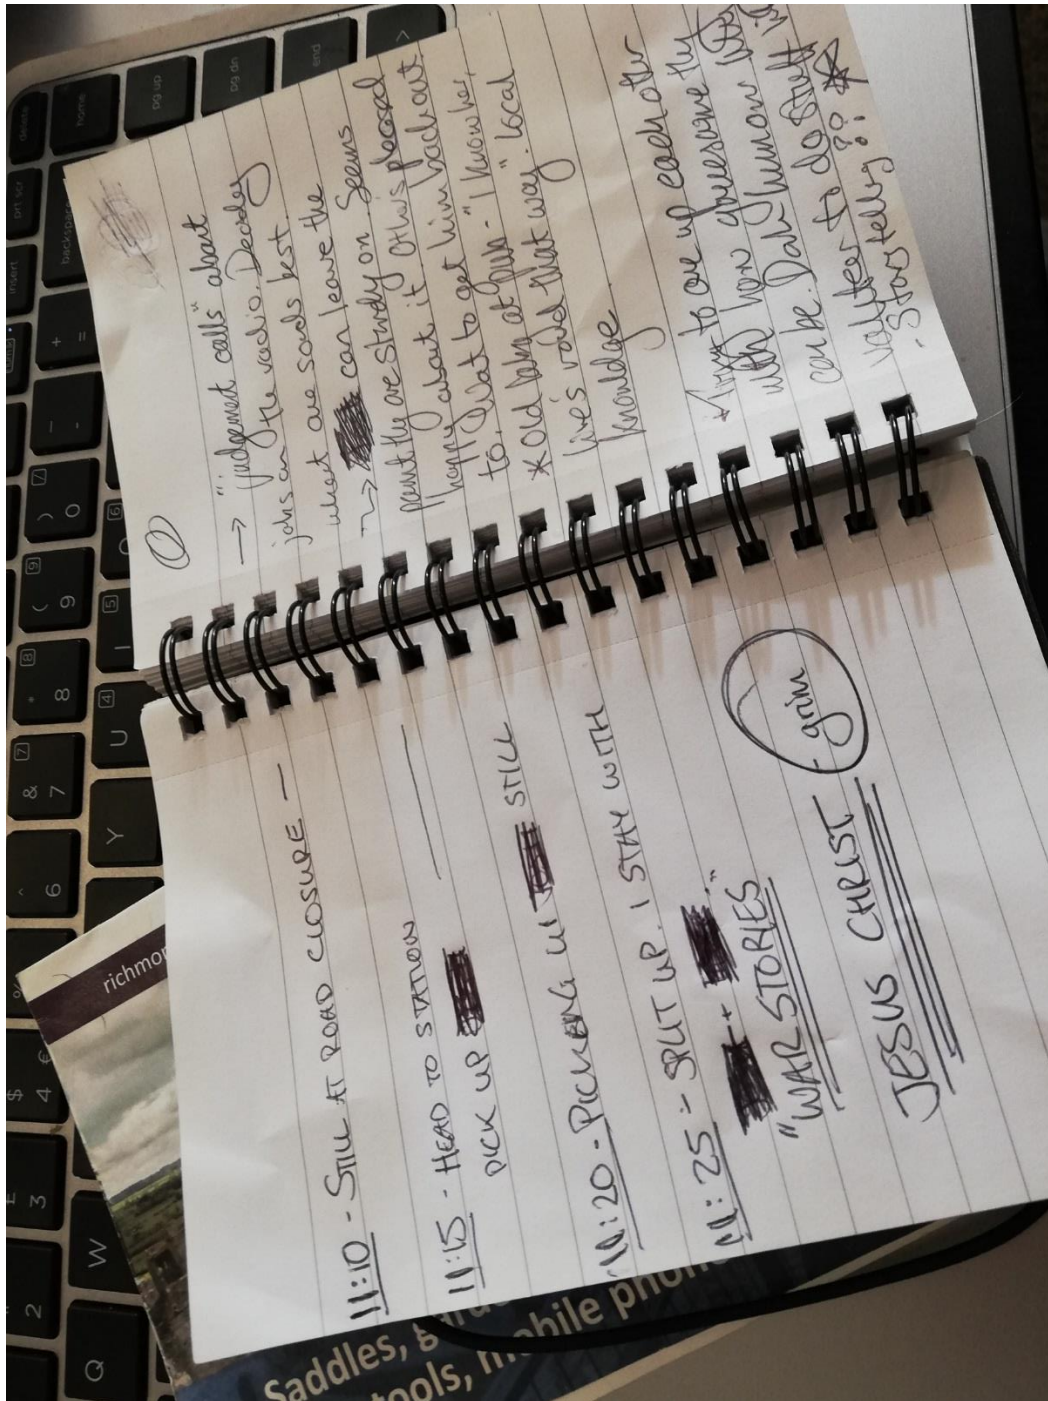 11:10 - STILL AT ROAD CLOSURE -
11:15 - HEAD TO STATION
PICK UP STILL
11:20 - PICKING UP
11:25 - SPLIT UP. I STAY WITH
+ ."
"WAR STORIES
- grim
JESUS CHRIST
→ "judgement calls" about
jobs on the radio. Deciding
what one sounds best.
can leave the
point they are steady on. Seems
happy about it others pleased
to. Want to get him back out
* Old at - "I know her,
lives round that way". Local
knowledge
* Trying to one up each other
with how gruesome they
can be. Dark humour
volunteer to do stuff
- Storytelling??
delete
home
pg up
pg dn
end
prt scr
insert
backspace
richmo
Saddles, g
tools, mobile phon
Q
W
Y
U
2
3
$
4
€
^
6
&
7
*
8
(
9
)
0
-
+
=